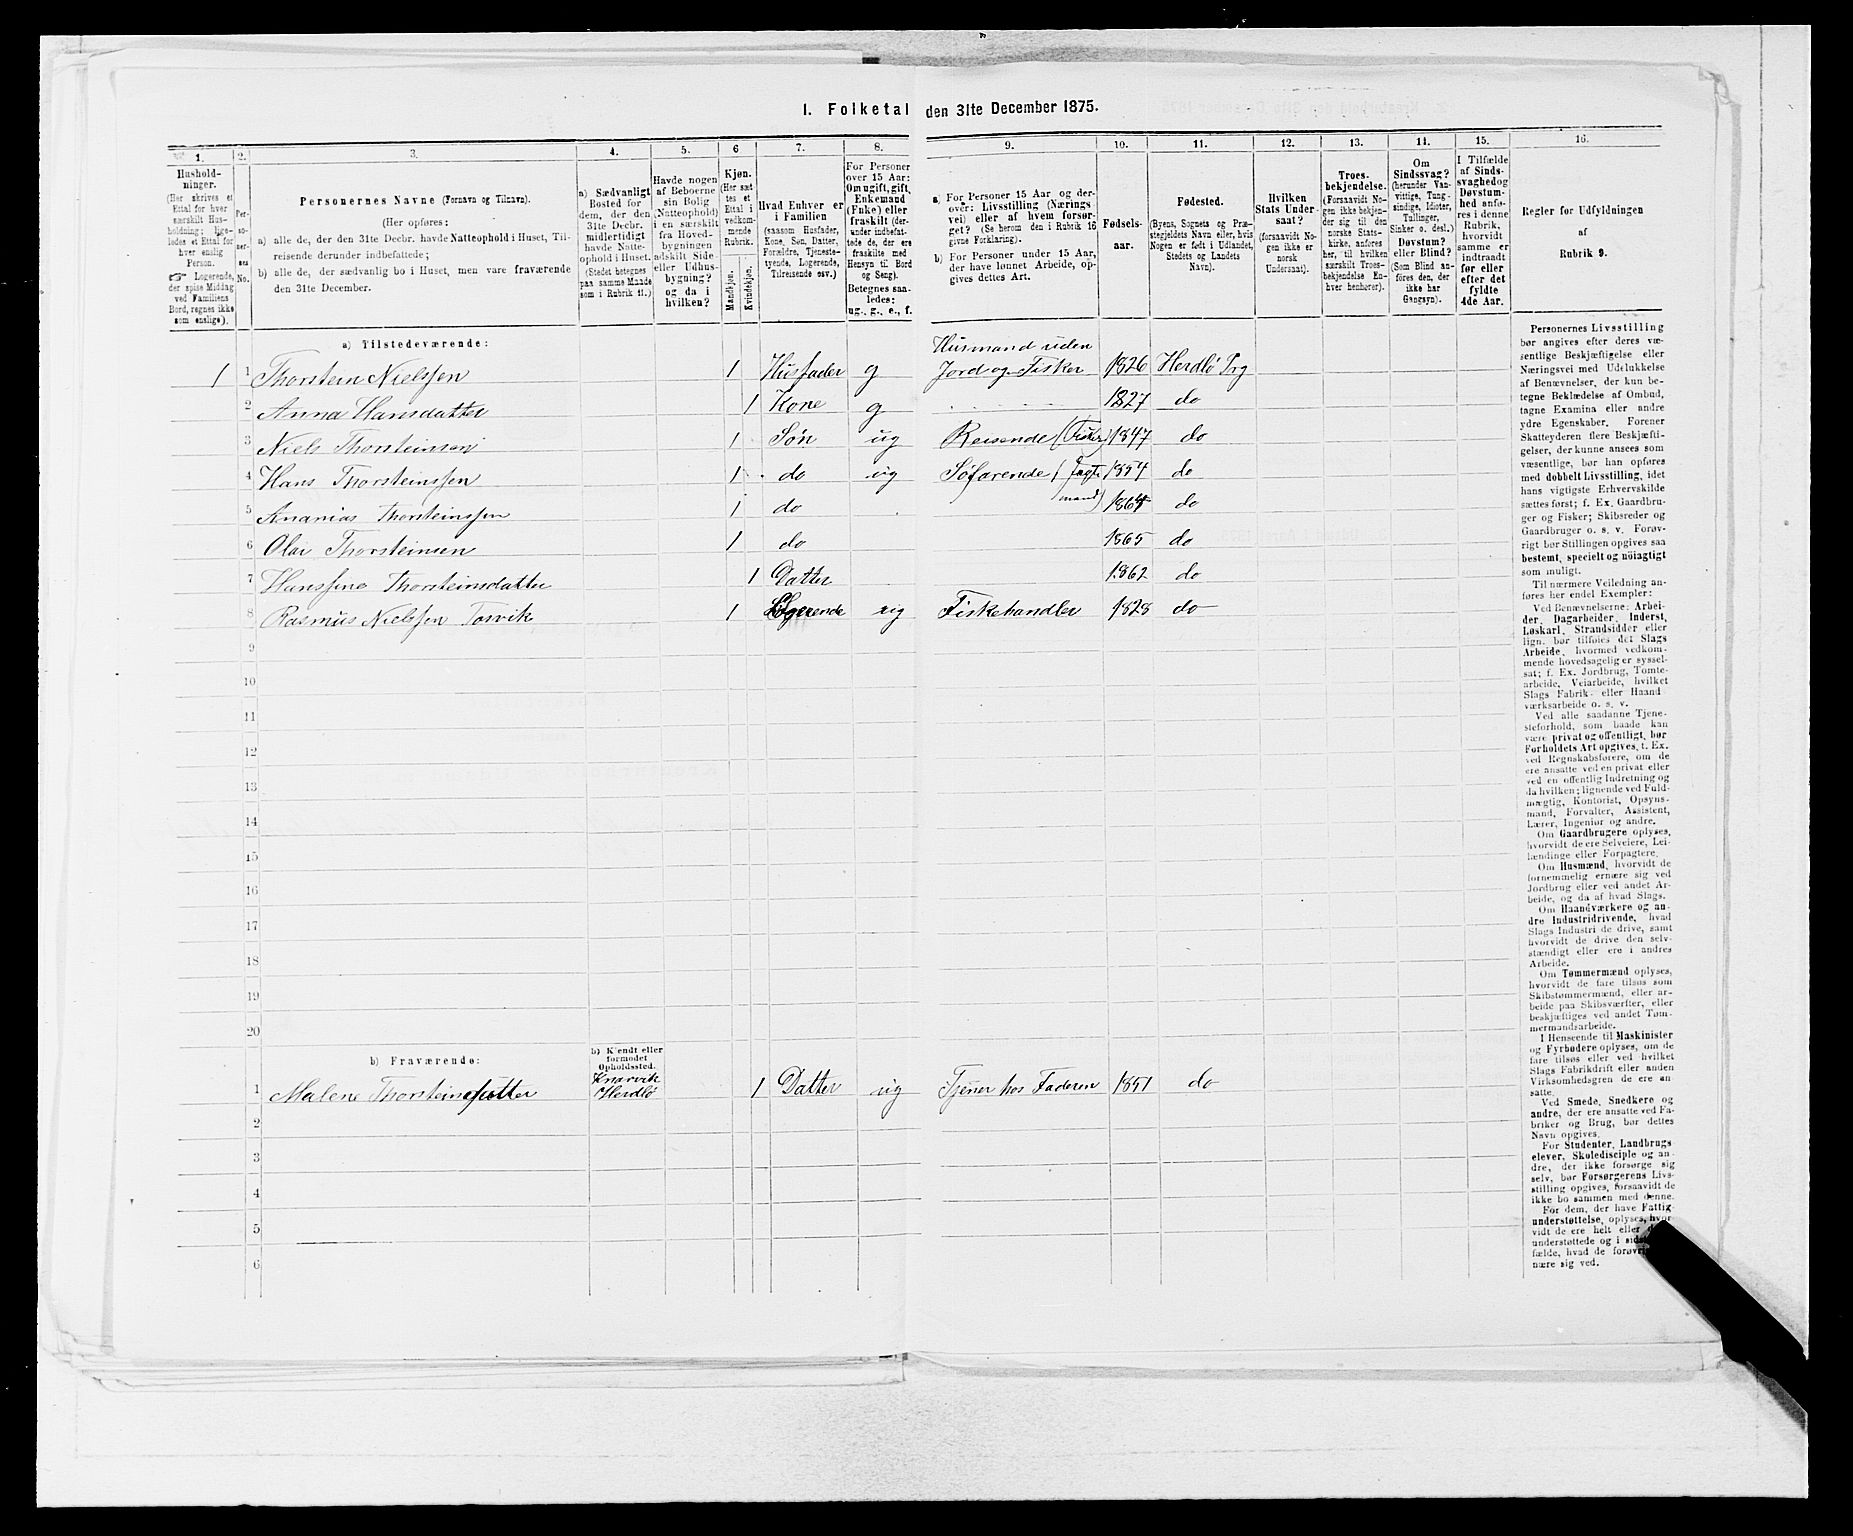 I. Folketal den 31te December 1875.
1. 2. 3. 4. 5. 6 7. 8. 9. 10. 11. 12. 13. 14. 15. 16.
Hushold-
ninger.
(Her skrives et
Ettal for hver
særskilt Hus-
holdning; lige-
ledes et Ettal for
hver enslig
Person.
☞ Logerende,
der spise Middag
ved Familiens
Bord, regnes ikke
som enslige).
Per-
so-
ner-
nes
No.
Personernes Navne (Fornavn og Tilnavn).
(Her opføres:
a) alle de, der den 31te Decbr. havde Natteophold i Huset, Til-
reisende derunder indbefattede;
b) alle de, der sædvanlig bo i Huset, men vare fraværende
den 31te December.
a) Sædvanligt
Bosted for
dem, der den
31te Decbr.
midlertidigt
havde Natte-
ophold i Huset.
(Stedet betegnes
paa samme Maade
som i Rubrik 11.)
Havde nogen
af Beboerne
sin Bolig
(Natteophold)
i en særskilt
fra Hoved-
bygningen
adskilt Side-
eller Udhus-
bygning?
og da i
hvilken?
Kjøn.
(Her sæt-
tes et
Ettal i
vedkom-
mende
Rubrik.
Mandkjøn.
Kvindekjøn.
Hvad Enhver er
i Familien
(saasom Husfader,
Kone, Søn, Datter,
Forældre, Tjeneste-
tyende, Logerende,
Tilreisende osv.)
For Personer
over 15 Aar:
Om ugift, gift,
Enkemand
(Enke) eller
fraskilt (der-
under indbefat-
tede de, der ere
fraskilte med
Hensyn til Bord
og Seng).
Betegnes saa-
ledes:
ug., g., e., f.
a) For Personer 15 Aar og der-
over: Livsstilling (Nærings-
vei) eller af hvem forsør-
get? (Se herom den i Rubrik 16
givne Forklaring).
b) For Personer under 15 Aar,
der have lønnet Arbeide, op-
gives dettes Art.
Fødsels-
aar.
Fødested.
(Byens, Sognets og Præ-
stegjeldets Navn eller, hvis
Nogen er født i Udlandet,
Stedets og Landets
Navn).
Hvilken
Stats Under-
saat?
(forsaavidt No-
gen ikke er
norsk
Undersaat).
Troes-
bekjendelse.
(Forsaavidt No-
gen ikke bekjen-
der sig til den
norske Stats-
kirke, anføres
her, til hvilken
særskilt Troes-
bekjendelse En-
hver henhører).
Om
Sindssvag?
(herunder Van-
vittige, Tung-
sindige, Idioter,
Tullinger,
Sinker o. desl.)
Døvstum?
eller Blind?
(Som Blind an-
føres den, der
ikke har
Gangsyn).
I Tilfælde
af Sinds-
svaghed og
Døvstum-
hed anfø-
res i denne
Rubrik,
hvorvidt
samme er
indtraadt
før eller
efter det
fyldte
4de Aar.
Regler for Udfyldningen
af
Rubrik 9.
a) Tilstedeværende:
Husmand uden
1 1 Thorstein Nielssen 1 Husfader g Jord og Fisker 1826 Herdlø Prg
2 Anna Hansdatter 1 Kone g 1827 do
3 Niels Thorsteinsen 1 Søn ug Reisende (Fisker) 1847 do
4 Hans Thorsteinssen 1 do ug Søfarende (Jagt- 1854 do
mand)
5 Ananias Thorsteinssen 1 do do
6 Olai Thorsteinsen 1 do 1865 do
7 Hanssine Thorsteinsdatter 1 Datter 1862 do
8 Rasmus Nielssen Torvik 1 Logerende ug Fiskehandler 1828 do
9
10
11
12
13
14
15
16
17
18
19
20
b) Fraværende:
b) Kjendt eller
formodet
Opholdssted.
Knarvik
1 Malene Thorsteinsdatter Herdlø 1 Datter ug Tjener hos Faderen 1851 do
2
3
4
5
6
Personernes Livsstilling
bør angives efter deres væ-
sentlige Beskjæftigelse eller
Næringsvei med Udelukkelse
af Benævnelser, der kun be-
tegne Beklædelse af Ombud,
tagne Examina eller andre
ydre Egenskaber. Forener
Skatteyderen flere Beskjæfti-
gelser, der kunne ansees som
væsentlige, bør han opføres
med dobbelt Livsstilling, idet
hans vigtigste Erhvervskilde
sættes først; f. Ex. Gaardbru-
ger og Fisker; Skibsreder og
Gaardbruger o. s. v. Forøv-
rigt bør Stillingen opgives saa
bestemt, specielt og nöiagtigt
som muligt.
Til nærmere Veiledning an-
føres her endel Exempler:
Ved Benævnelserne: Arbei-
der, Dagarbeider, Inderst,
Løskarl, Strandsidder eller
lign. bør tilføies det Slags
Arbeide, hvormed vedkom-
mende hovedsagelig er syssel-
sat; f. Ex. Jordbrug, Tomte-
arbeide, Veiarbeide, hvilket
Slags Fabrik- eller Haand-
værksarbeide o. s. v.
Ved alle saadanne Tjene-
steforhold, som baade kan
være privat og offentligt, bør
Forholdets Art opgives, t. Ex.
ved Regnskabsførere, om de
ere ansatte ved en privat eller
ved en offentlig Indretning og
da hvilken; lignende ved Fuld-
mægtig, Kontorist, Opsyns-
mand, Forvalter, Assistent,
Lærer, Ingeniør og andre.
Om Gaardbrugere oplyses,
hvorvidt de ere Selveiere, Lei-
lændinge eller Forpagtere.
Om Husmænd, hvorvidt de
fornemmelig ernære sig ved
Jordbrug eller ved andet Ar-
beide, og da af hvad Slags.
Om Haandværkere og an-
dre Industridrivende, hvad
Slags Industri de drive, samt
hvorvidt de drive den selv-
stændigt eller ere i andres
Arbeide.
Om Tømmermænd oplyses,
hvorvidt de fare tilsøs som
Skibstømmermænd, eller ar-
beide paa Skibsværfter, eller
beskjæftiges ved andet Tøm-
mermandsarbeide.
I Henseende til Maskinister
og Fyrbødere oplyses, om de
fare tilsøs eller ved hvilket
Slags Fabrikdrift eller anden
Virksomhedsgren de ere an-
satte.
Ved Smede, Snedkere og
andre, der ere ansatte ved Fa-
briker og Brug, bør dettes
Navn opgives.
For Studenter, Landbrugs
elever, Skoledisciple og an-
dre, der ikke forsørge sig
selv, bør Forsørgerens Livs-
stilling opgives, forsaavidt de
ikke bo sammen med denne.
For dem, der have Fattig-
understøttelse, oplyses, hvor-
vidt de ere helt eller
understøttede og i
fælde, hvad de
nære sig ved.